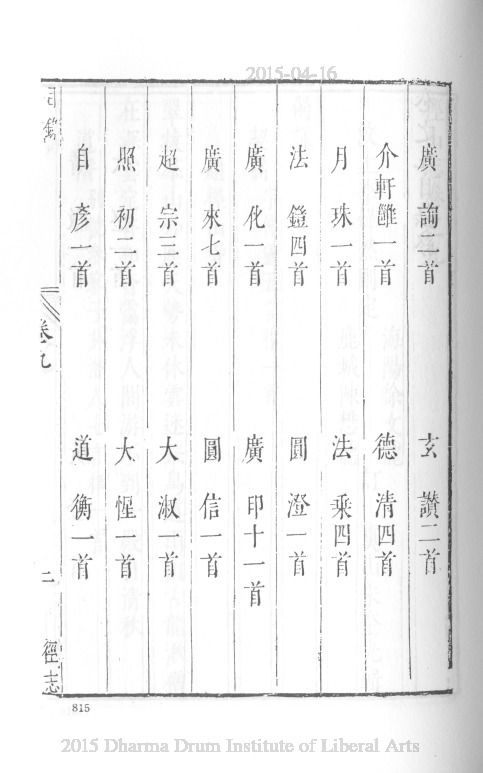 2015-04-16
廣詢二首 玄讚二首
介軒雝一首 德清四首
月珠一首 法乘四首
法鐙四首 圓澄一首
廣化一首 廣印十一首
廣來七首 圓信一首
超宗三首 大淑一首
照初二首 大惺一首
自彥一首 道衡一首
目錄 卷九 二 徑志
815
2015 Dharma Drum Institute of Liberal Arts